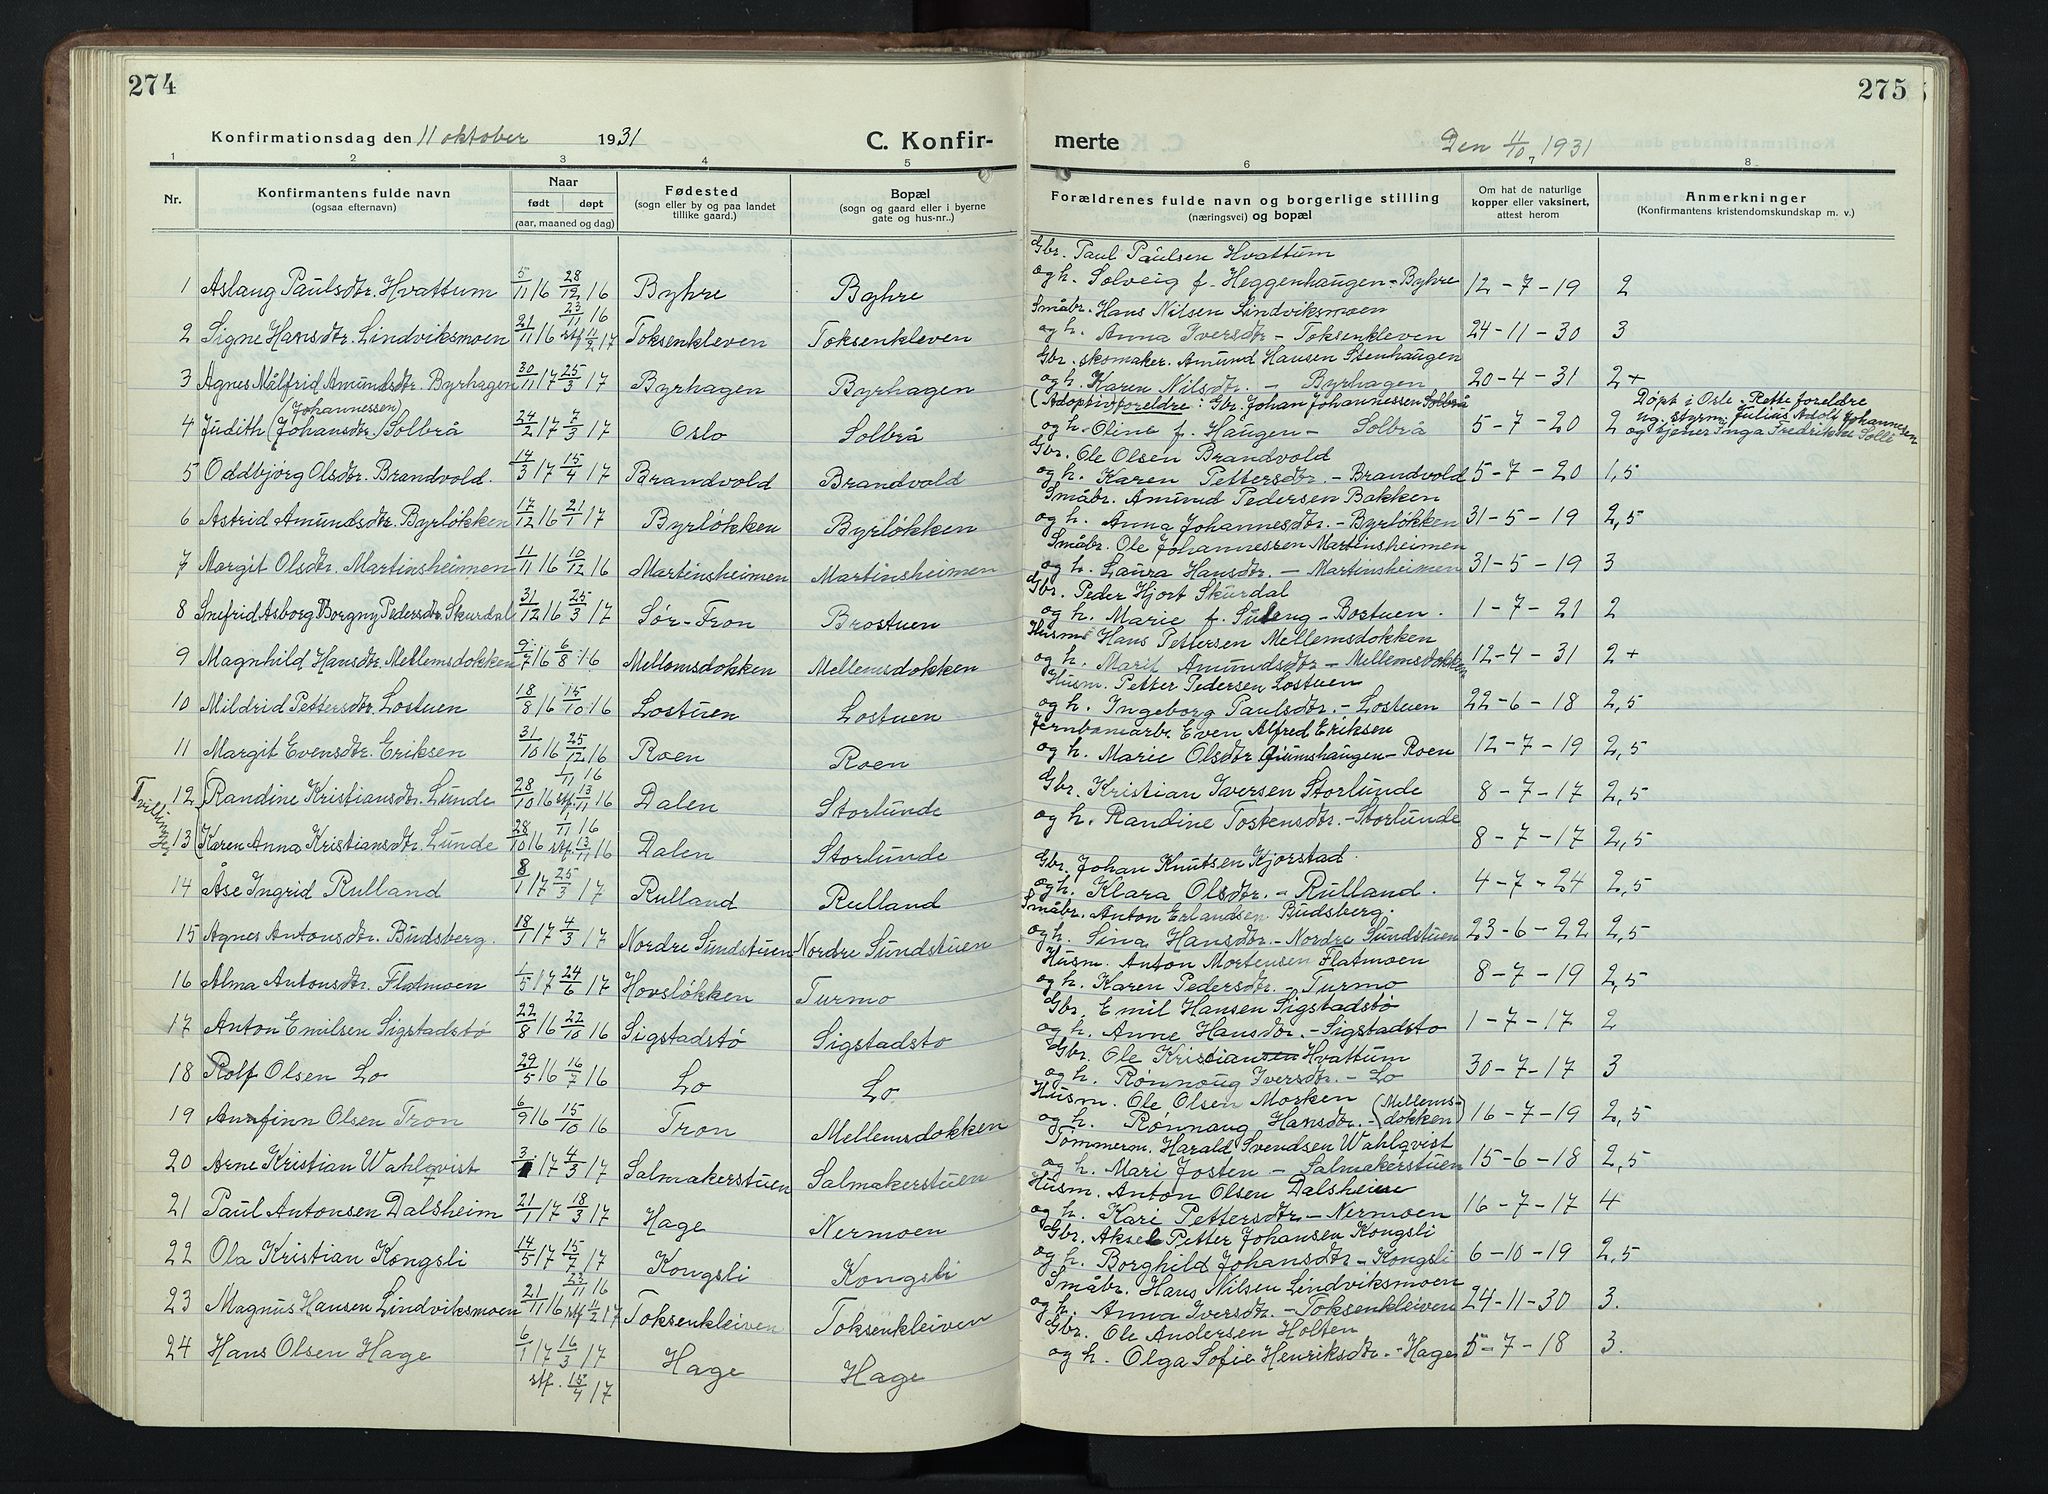 274
Konfirmationsdag den 11 oktober 1931
C. Konfir-
1 2 3 4 5
Nr.
Konfirmantens fulde navn
(ogsaa efternavn)
Naar
født døpt
(aar, maaned og dag)
Fødested
(sogn eller by og paa landet
tillike gaard.)
Bopæl
(sogn og gaard eller i byerne
gate og hus-nr..)
1 Aslaug Paulsdtr. Hvattum 5/11 16 28/12 16 Byhre Byhre
23/11 16
2 Signe Hansdtr. Lindviksmoen 21/11 16 stf 11/2 17 Toksenkleven Toksenkleven
3 Agnes Målfrid Amundsdtr. Byrhagen 30/11 17 25/3 17 Byrhagen Byrhagen
(Johannessen)
4 Judith (Johansdtr.) Solbrå 24/2 17 7/3 17 Oslo Solbrå
5 Oddbjørg Olsdtr. Brandvold. 14/3 17 15/4 17 Brandvold Brandvold
6 Astrid Amundsdtr. Byrløkken 17/12 16 21/1 17 Byrløkken Byrløkken
7 Margit Olsdtr. Martinsheimen 11/11 16 10/12 16 Martinsheimen Martinsheimen
8 Snefrid Asborg Borgny Pedersdtr. Skurdal 31/12 16 25/3 17 Sør-Fron Brostuen
9 Magnhild Hansdtr. Mellemsdokken 9/7 16 6/8 16 Mellemsdokken Mellemsdokken
10 Mildrid Pettersdtr. Lostuen 18/8 16 15/10 16 Lostuen Lostuen
11 Margit Evensdtr. Eriksen 31/10 16 25/12 16 Roen Roen
Tvillinger
1/11 16
12 Randine Kristiansdtr. Lunde 28/10 16 stf. 13/11 16 Dalen Storlunde
1/11 16
13 Karen Anna Kristiansdtr. Lunde 28/10 16 stf. 13/11 16 Dalen Storlunde
14 Åse Ingrid Rulland 8/1 17 25/3 17 Rulland Rulland
15 Agnes Antonsdtr. Budsberg. 18/1 17 4/3 17 Nordre Sundstuen Nordre Sundstuen
16 Alma Antonsdtr. Flatmoen 1/5 17 24/6 17 Hovsløkken Turmo
17 Anton Emilsen Sigstadstø 22/8 16 22/10 16 Sigstadstø Sigstadstø
18 Rolf Olsen Lo 29/5 16 16/7 16 Lo Lo
19 Arnfinn Olsen Tron 6/9 16 15/10 16 Tron Mellemsdokken
20 Arne Kristian Wahlqvist 3/1 17 4/3 17 Salmakerstuen Salmakerstuen
21 Paul Antonsen Dalsheim 21/1 17 18/3 17 Hage Nermoen
22 Ola Kristian Kongsli 14/5 17 15/7 17 Kongsli Kongsli
23/11 16
23 Magnus Hansen Lindviksmoen 21/11 16 stf 11/2 17 Toksenkleiven Toksenkleiven
24 Hans Olsen Hage 6/1 17 16/3 17 Hage Hage
stf. 15/4 17
275
merte
Den 11/10, 1931
6 8
Forældrenes fulde navn og borgerlige stilling
(næringsvei) og bopæl
Om hat de naturlige
kopper eller vaksinert,
attest herom
Anmerkninger
(Konfirmantens kristendomskundskap m. v.)
Gbr. Paul Paulsen Hvattum
og h. Solveig f. Heggenhaugen - Byhre 12-7-19 2
Småbr. Hans Nilsen Lindviksmoen
og h. Anna Iversdtr - Toksenkleven 24-11-30 3
Gbr. skomaker. Amund Hansen Stenhaugen
og h. Karen Nilsdtr. - Byrhagen 20-4-31 2+
(Adoptivforeldre: Gbr. Johan Johannessen Solbrå Døpt i Oslo. Rette foreldre
og h. Oline f. Haugen - Solbrå 5-7-20 2 ug. styrm. Julius Adolf Johannesen
og tjener Inga Fredrikke Solli
Gbr. Ole Olsen Brandvold
og h. Karen Pettersdtr. - Brandvold 5-7-20 1,5
Småbr. Amund Pedersen Bakken
og h. Anna Johannesdtr. - Byrløkken 31-5-19 2,5
Småbr. Ole Johannessen Martinsheimen
og h. Laura Hansdtr. - Martinsheimen 31-5-19 3
Gbr. Peder Hjort Skurdal
og h. Marie f. Suleng - Bostuen. 1-7-21 2
Husm. Hans Pettersen Mellemsdokken
og h. Marit Amundsdtr - Mellemsdokken 12-4-31 2+
Husm. Petter Pedersen Lostuen
og h. Ingeborg Paulsdtr. - Lostuen 22-6-18 2,5
Jernbanearb. Even Alfred Eriksen
og h. Marie Olsdtr. Giumshaugen - Roen 12-7-19 2,5
Gbr. Kristian Iversen Storlunde 8-7-17 2,5
og h. Randine Tostensdtr. - Storlunde
8-7-17 2,5
Gbr. Johan Knutsen Kjorstad.
og h. Klara Olsdtr. - Rulland. 4-7-24 2,5
Småbr. Anton Erlandsen Budsberg.
og h. Sina Hansdtr. - Nordre Sundstuen 23-6-22 2,5
Husm. Anton Mortensen Flatmoen
og h. Karen Pedersdtr. - Turmo 8-7-19 2,5
Gbr. Emil Hansen Sigstadstø
og h. Anne Hansdtr. - Sigstadstø 1-7-17 2
Gbr. Ole Kristiansen Hvattum
og h. Rønnoug Iversdtr. - Lo 30-7-17 3
Husm. Ole Olsen Morken
og h. Rønnaug Hansdtr. - (Mellemsdokken) 16-7-19 2,5
Tømmerm. Harald Svendsen Wahlqvist
og h. Mari Josten - Salmakerstuen 15-6-18 2,5
Husm. Anton Olsen Dalsheim
og h. Kari Pettersdtr. - Nermoen 16-7-17 4
Gbr. Aksel Petter Johansen Kongsli
og h. Borghild Johansdtr - Kongsli 6-10-19 2,5
Småbr. Hans Nilsen Lindviksmoen
og h. Anna Iversdtr. - Toksenkleiven 24-11-30 3.
Gbr. Ole Andersen Holten
og h. Olga Sofie Henriksdtr. - Hage 5-7-18 3.